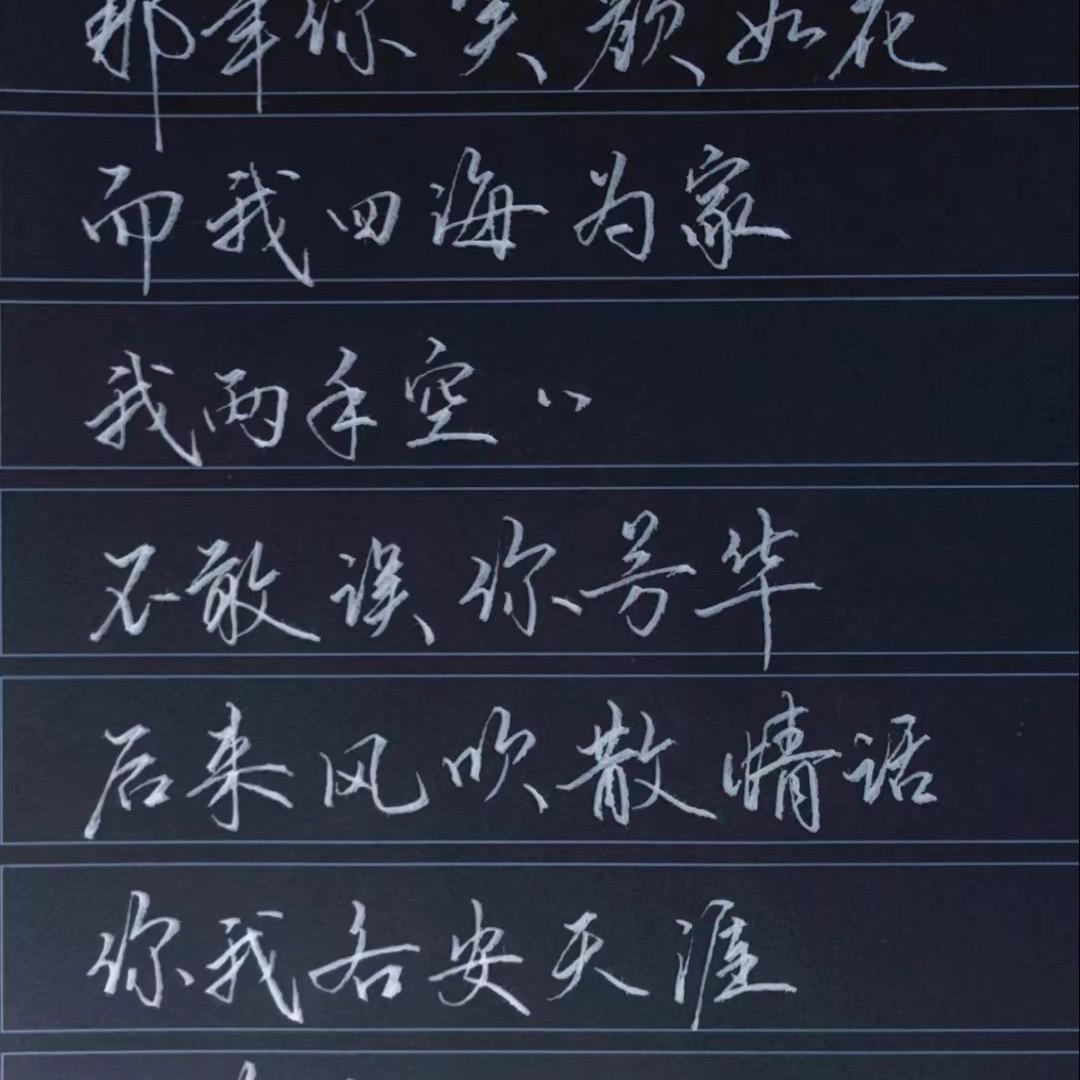 那年你笑颜如花
而我四海为家
我两手空空
不敢误你芳华
后来风吹散情话
你我各安天涯